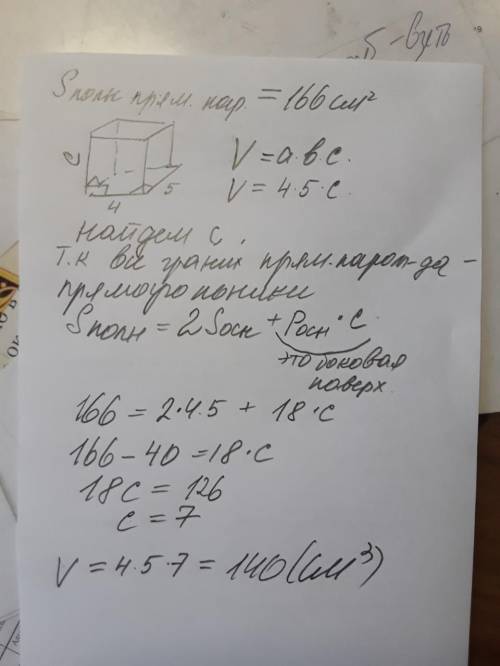 б - вуть
S полн прям. пар. = 166 см²
c
5
4
V = a·в·c.
V = 4·5·c
найдем c.
т.к все грани прям. парал-да -
S полн = 2 Sосн + Pосн · c
это боковая
поверх.
166 = 2·4·5 + 18·c
166 - 40 = 18·c
18c = 126
c = 7
V = 4·5·7 = 140 (см³)